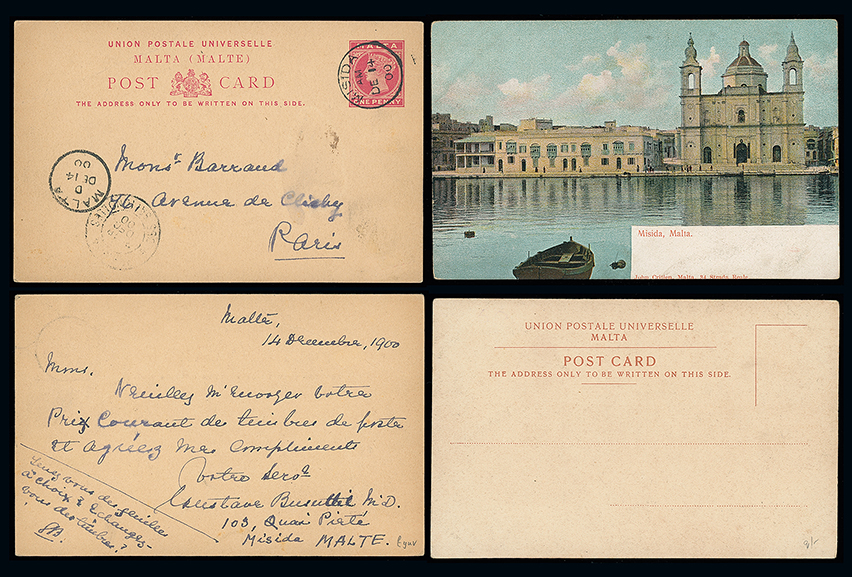 UNION POSTALE UNIVERSELLE
MALTA (MALTE)
POST CARD
THE ADDRESS ONLY TO BE WRITTEN ON THIS SIDE.
MALTA
ONE PENNY
MISIDA
AM
DE 14
00
MALTA
D
DE 14
00
Monsr Barraud
Avenue de Clichy
Paris
Misida, Malta.
John Critien, Malta, 34 Strada Reale
Malte,
14 Decembre, 1900
Mons.
Veuillez m'envoyer votre
Prix Courant des timbres de poste
et agréez mes compliments
Votre Servr
Gustave Busuttil M.D.
103, Quai Pieté
Misida MALTE.
Tenez vous des feuilles
à choix? Echangez-
vous des timbres?
GB.
UNION POSTALE UNIVERSELLE
MALTA
POST CARD
THE ADDRESS ONLY TO BE WRITTEN ON THIS SIDE.